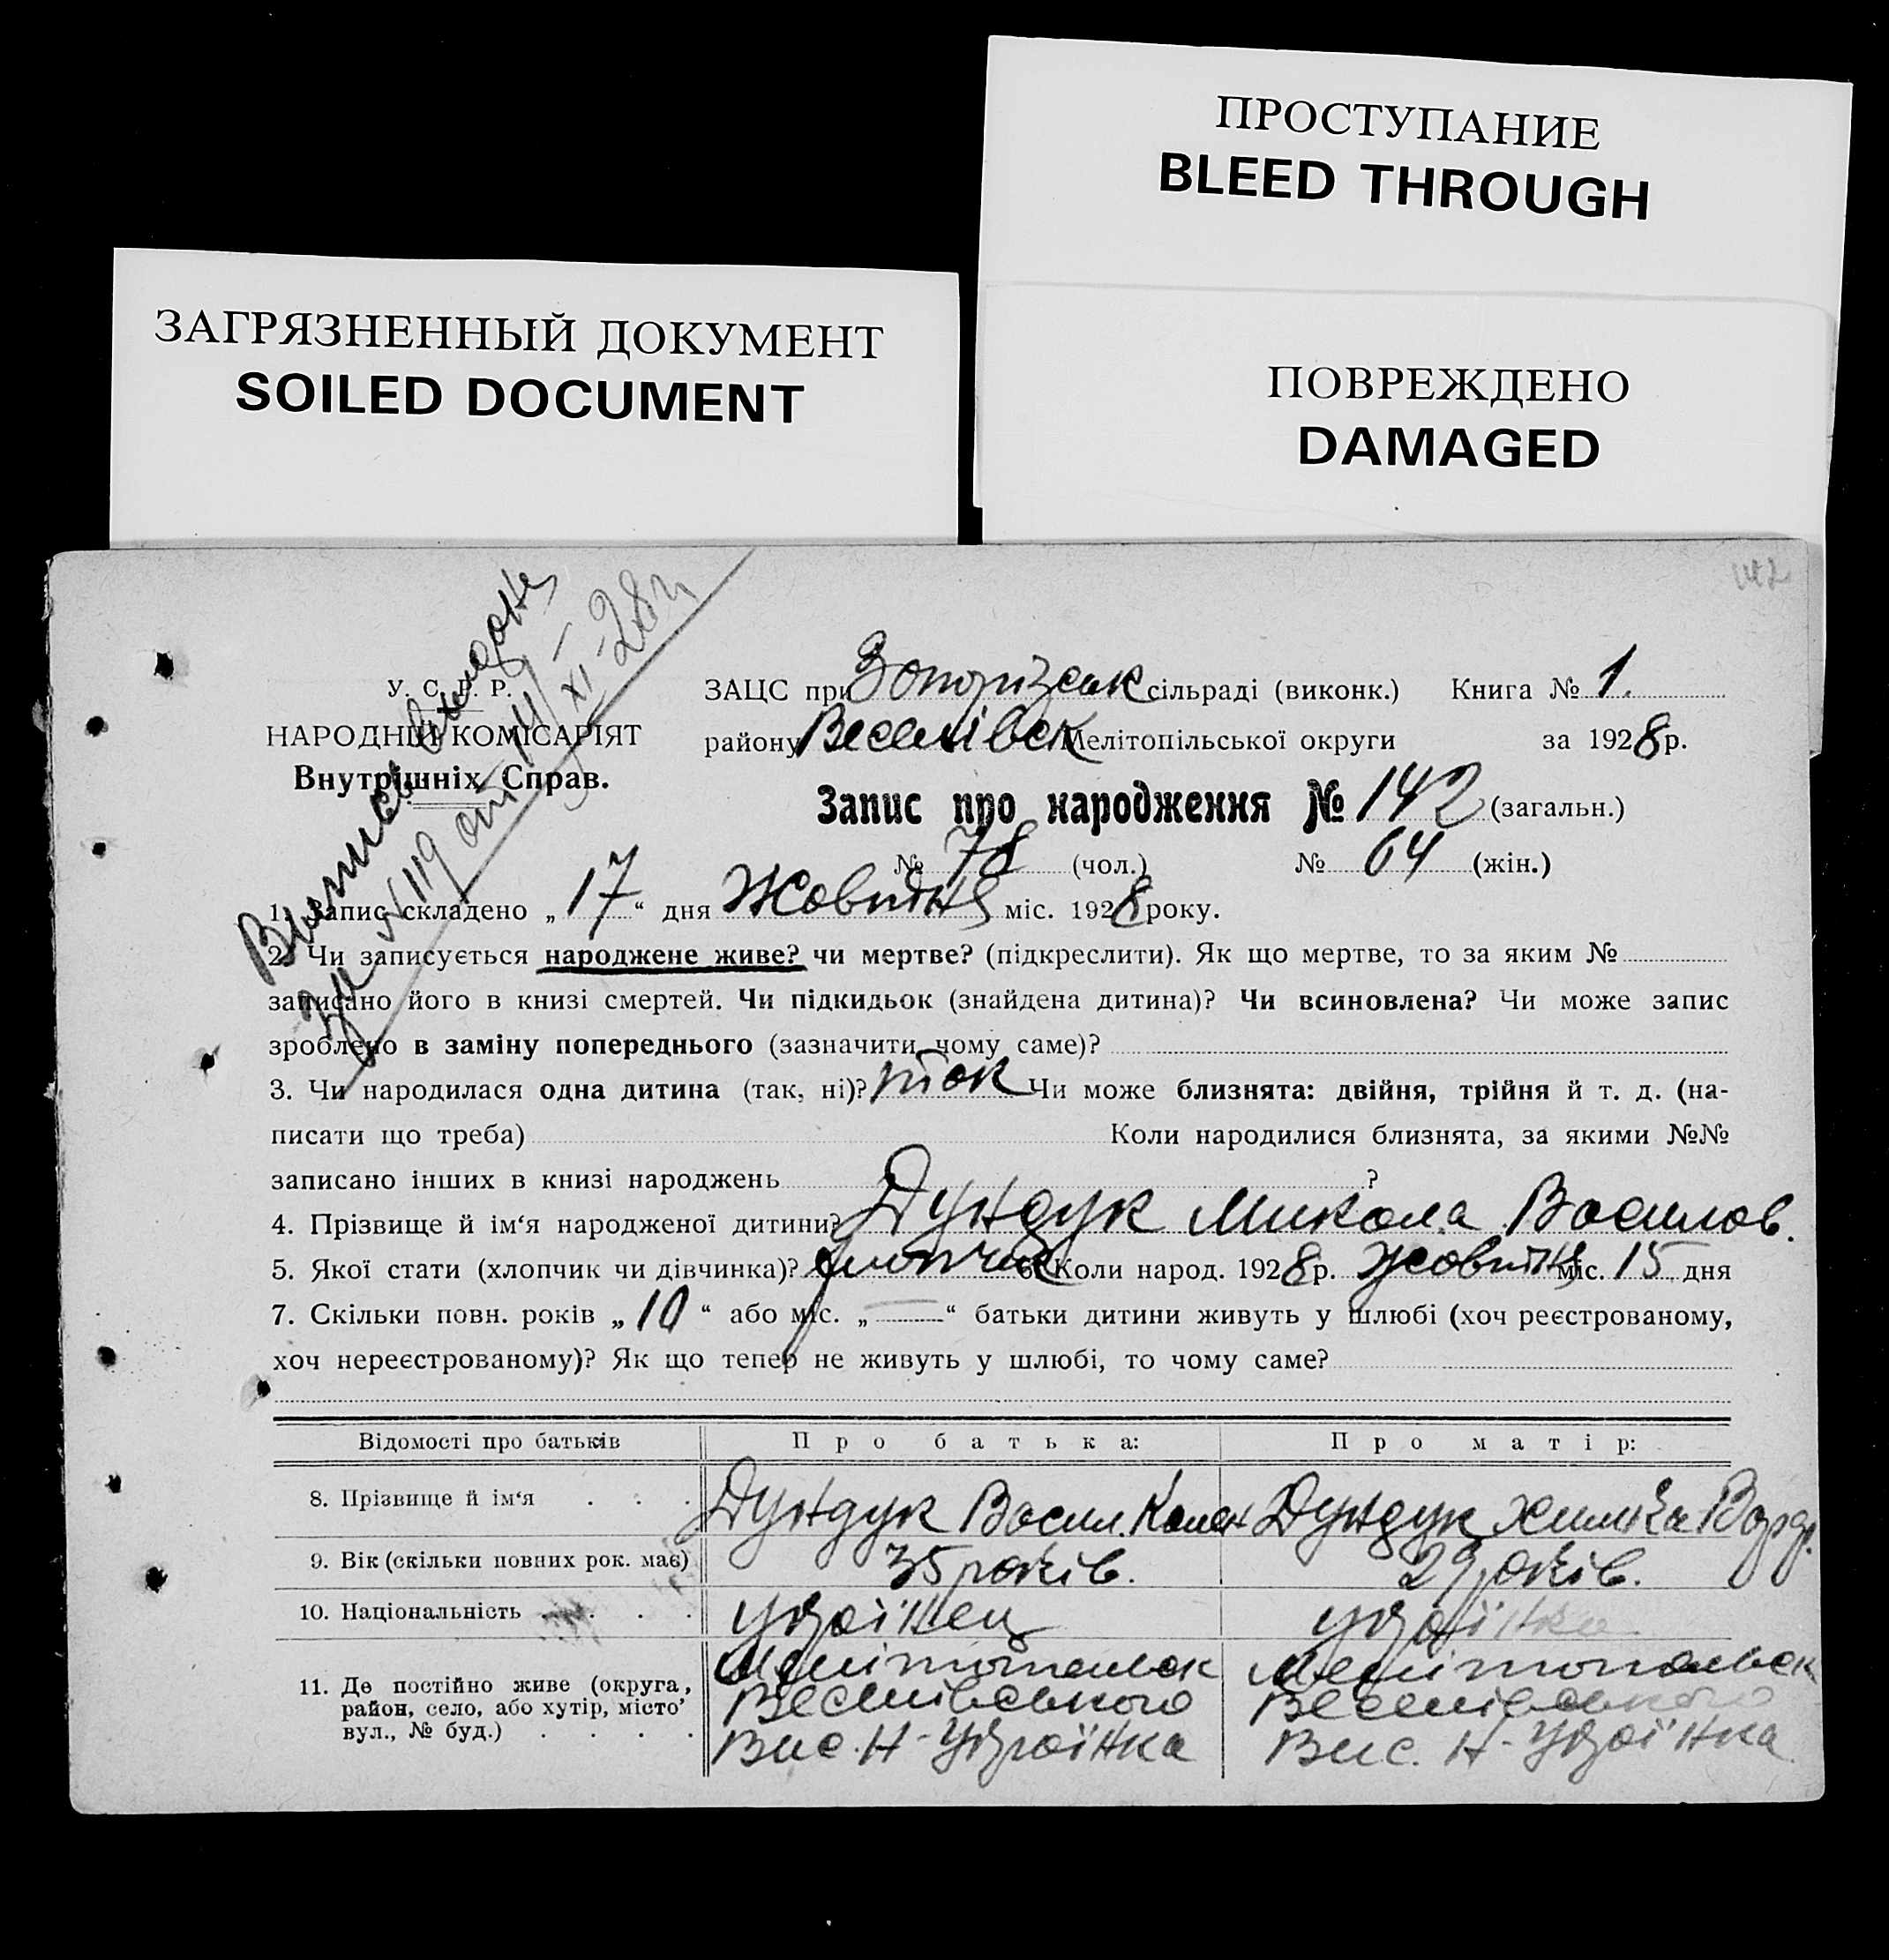 ПРОСТУПАНИЕ
BLEED THROUGH
ЗАГРЯЗНЕННЫЙ ДОКУМЕНТ
SOILED DOCUMENT
ПОВРЕЖДЕНО
DAMAGED
142
У. С. Р. Р.
НАРОДНІЙ КОМІСАРІЯТ
Внутрішніх Справ.
Витяг
За № 119 от XI-28
ЗАЦС при Запорізськ сільраді (виконк.) Книга № 1.
району Веселівськ Мелітопільської округи за 1928 р.
Запис про народження № 142 (загальн.)
№ 78 (чол.) № 64 (жін.)
1. Запис складено „17“ дня Жовтня міс. 1928 року.
2. Чи записується народжене живе? чи мертве? (підкреслити). Як що мертве, то за яким №
записано його в книзі смертей. Чи підкидьок (знайдена дитина)? Чи всиновлена? Чи може запис
зроблено в заміну попереднього (зазначити чому саме)?
3. Чи народилася одна дитина (так, ні)? так Чи може близнята: двійня, трійня й т. д. (на-
писати що треба) Коли народилися близнята, за якими №№
записано інших в книзі народжень ?
4. Прізвище й ім‘я народженої дитини? Дундук Микола Васильов.
5. Якої стати (хлопчик чи дівчинка)? хлопчик 6. Коли народ. 1928 р. Жовтня міс. 15 дня
7. Скільки повн. років „10“ або міс. „—“ батьки дитини живуть у шлюбі (хоч реєстрованому,
хоч нереєстрованому)? Як що тепер не живуть у шлюбі, то чому саме?
Відомості про батьків Про батька: Про матір:
8. Прізвище й ім‘я . . . Дундук Васил. Дундук Химка
9. Вік (скільки повних рок. має) 35 років. 29 років.
10. Національність . . . . Українец Українка
11. Де постійно живе (округа, район, село, або хутір, місто’ вул., № буд.) . . . .
Мелітопольськ Мелітопольськ
Веселівського Веселівського
Вис. Н-Українка Вис. Н-Українка